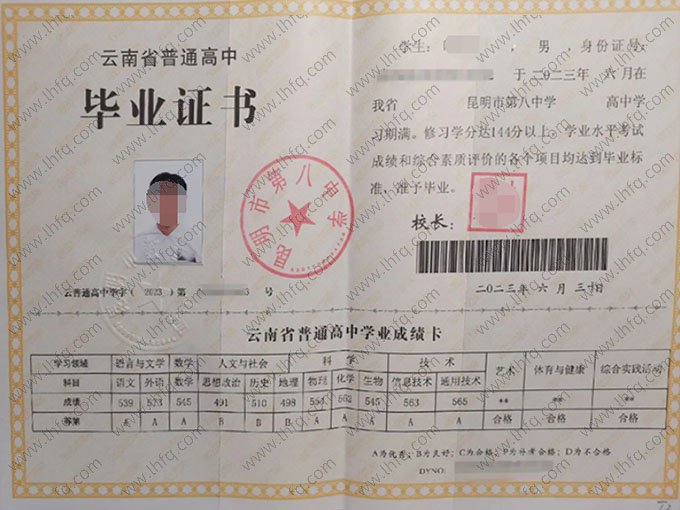 云南省普通高中
毕业证书
学生：
，男，身份证号：
于二〇二三年六月在
我省 昆明市第八中学 高中学
习期满。修习学分达144分以上，学业水平考试
成绩和综合素质评价的各个项目均达到毕业标
准，准予毕业。
校长：
昆明市第八中学
云普通高中毕字（2023）第 号
二〇二三年 六 月 三十日
云南省普通高中学业成绩卡
学习领域 语言与文学 数学 人文与社会 科 学 技 术 艺术 体育与健康 综合实践活动
科目 语文 外语 数学 思想政治 历史 地理 物理 化学 生物 信息技术 通用技术
成绩 539 545 491 510 498 545 563 565 ** ** **
等第 A A B B B A A A A A 合格 合格 合格
A为优秀；B为良好；C为合格；P为补考合格；D为不合格
DYNO:
www.lhfq.com